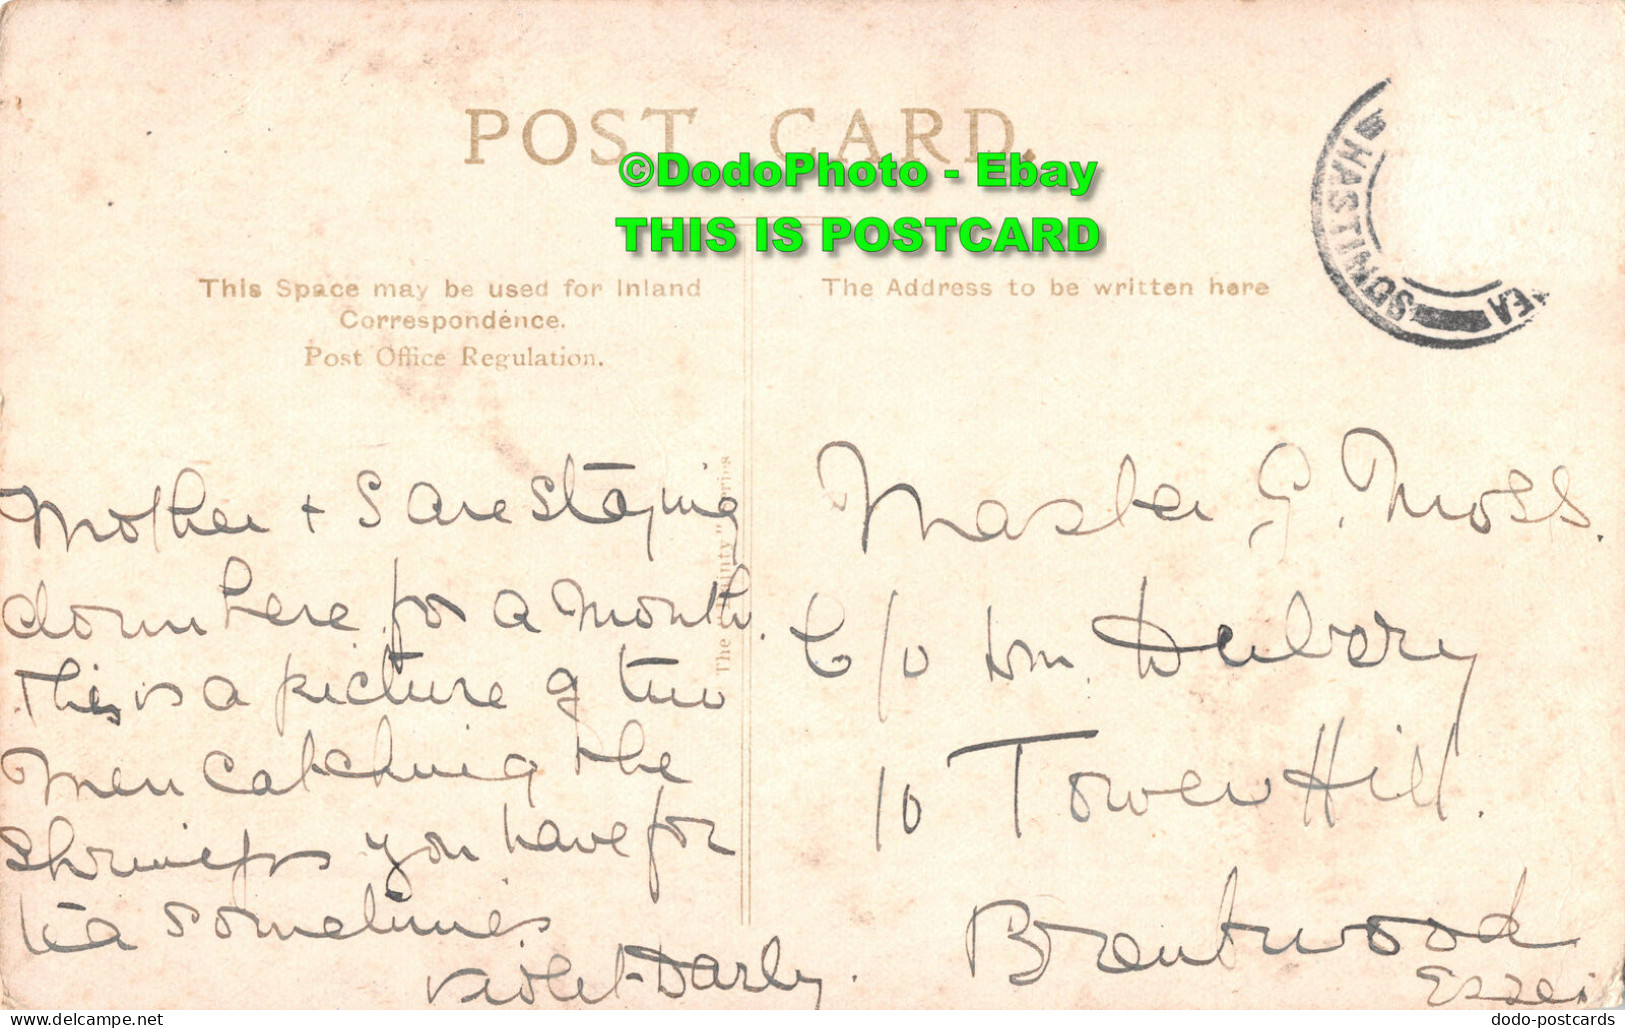 POST CARD.
©DodoPhoto - Ebay
THIS IS POSTCARD
This Space may be used for Inland
Correspondence.
Post Office Regulation.
The Address to be written here
HASTINGS
EA
Mother + I are staying
down here for a month.
This is a picture of two
Men catching the
shrimps you have for
tea sometimes
Violet Darby.
The Series
Master G. Moss.
C/o Wm.
10 Tower Hill.
Brentwood
Essex
dodo-postcards
www.delcampe.net